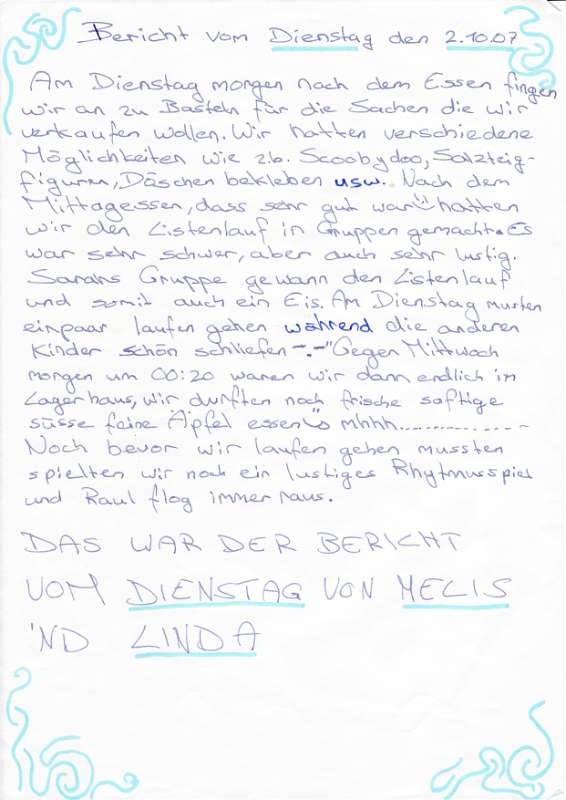 Bericht vom Dienstag den 2.10.07
Am Dienstag morgen nach dem Essen fingen
wir an zu Basteln für die Sachen die wir
verkaufen wollen. Wir hatten verschiedene
Möglichkeiten wie z.b. Scoobydoo, Salzteig-
figuren, Däschen bekleben usw. Nach dem
Mittagessen, dass sehr gut war hatten
wir den Listenlauf in Gruppen gemacht. Es
war sehr schwer, aber auch sehr lustig.
Sarahs Gruppe gewann den Listenlauf
und somit auch ein Eis. Am Dienstag musten
einpaar laufen gehen während die anderen
Kinder schön schliefen -.-" Gegen Mittwoch
morgen um 00:20 waren wir dann endlich im
Lagerhaus, wir durften noch frische saftige
süsse feine Äpfel essen mhhh..................
Noch bevor wir laufen gehen mussten
spielten wir noch ein lustiges Rhytmusspiel
und Raul flog immer raus.
DAS WAR DER BERICHT
VOM DIENSTAG VON MELIS
'ND LINDA